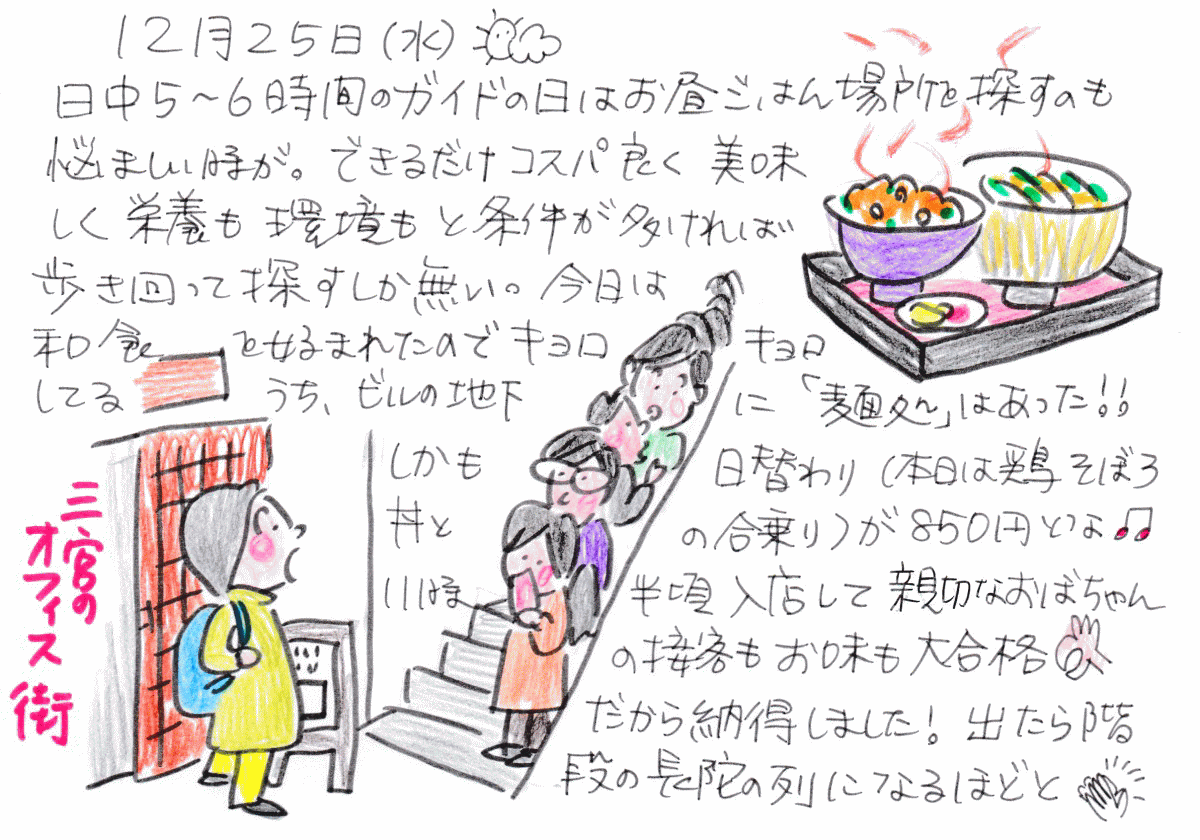 12月25日(水)
日中5~6時間のガイドの日はお昼ごはん場所を探すのも
悩ましい時が。できるだけコスパ良く 美味
しく 栄養も 環境もと条件が多ければ
歩き回って探すしか無い。今日は
和食を好まれたのでキョロキョロ
してるうち、ビルの地下に「麺くん」はあった!!
しかも日替わり(本日は鶏そぼろ
丼との合乗り)が850円とな♫
11時半頃入店して 親切なおばちゃん
の接客もお味も大合格👌
だから納得しました! 出たら階
段の長陀の列になるほどと
三宮の
オフィス街